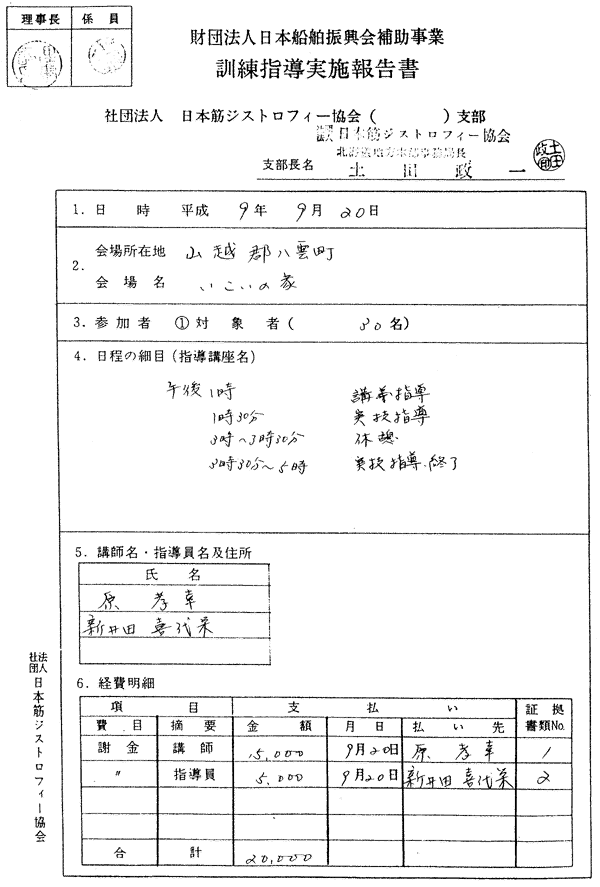 理事長 係員
財団法人日本船舶振興会補助事業
訓練指導実施報告書
社団法人 日本筋ジストロフィー協会( )支部
日本筋ジストロフィー協会
支部長名 土田政一
1.日時 平成 9年 9月 20日
2. 会場所在地 山越郡八雲町
会場名 いこいの家
3.参加者 ①対象者( 30名)
4.日程の細目(指導講座名)
午後1時 講義指導
1時30分 実技指導
3時~3時30分 休憩
3時30分~5時 実技指導、終了
5.講師名・指導員名及住所
氏名
原 孝幸
新井田 喜代栄
6.経費明細
項目 支払い 証拠書類No.
費目 摘要 金額 月日 払い先
謝金 講師 15,000 9月20日 原 孝幸 1
〃 指導員 5,000 9月20日 新井田 喜代栄 2
合計 20,000
社団法人 日本筋ジストロフィー協会